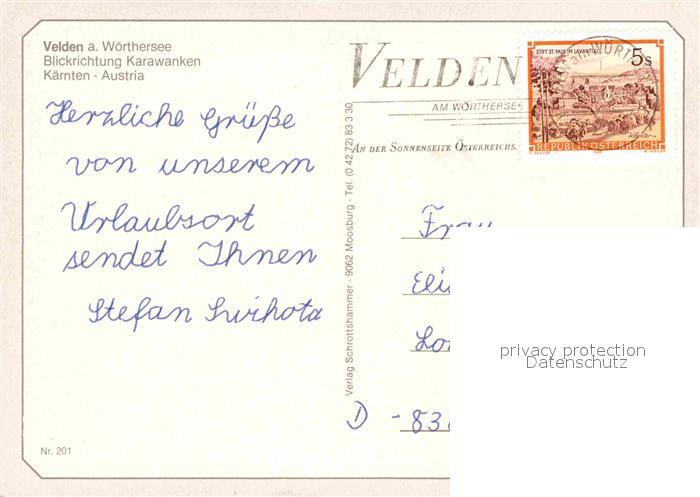 Velden a. Wörthersee
Blickrichtung Karawanken
Kärnten - Austria
Herzliche Grüße
von unserem
Urlaubsort
sendet Ihnen
Stefan
Nr. 201
Verlag Schrottshammer · 9062 Moosburg · Tel. (0 42 72) 83 3 30
VELDEN
AM WÖRTHERSEE
AN DER SONNENSEITE ÖSTERREICHS.
STIFT ST. PAUL IM LAVANTTAL
5s
REPUBLIK ÖSTERREICH
Frau
Eli
D -83
privacy protection
Datenschutz